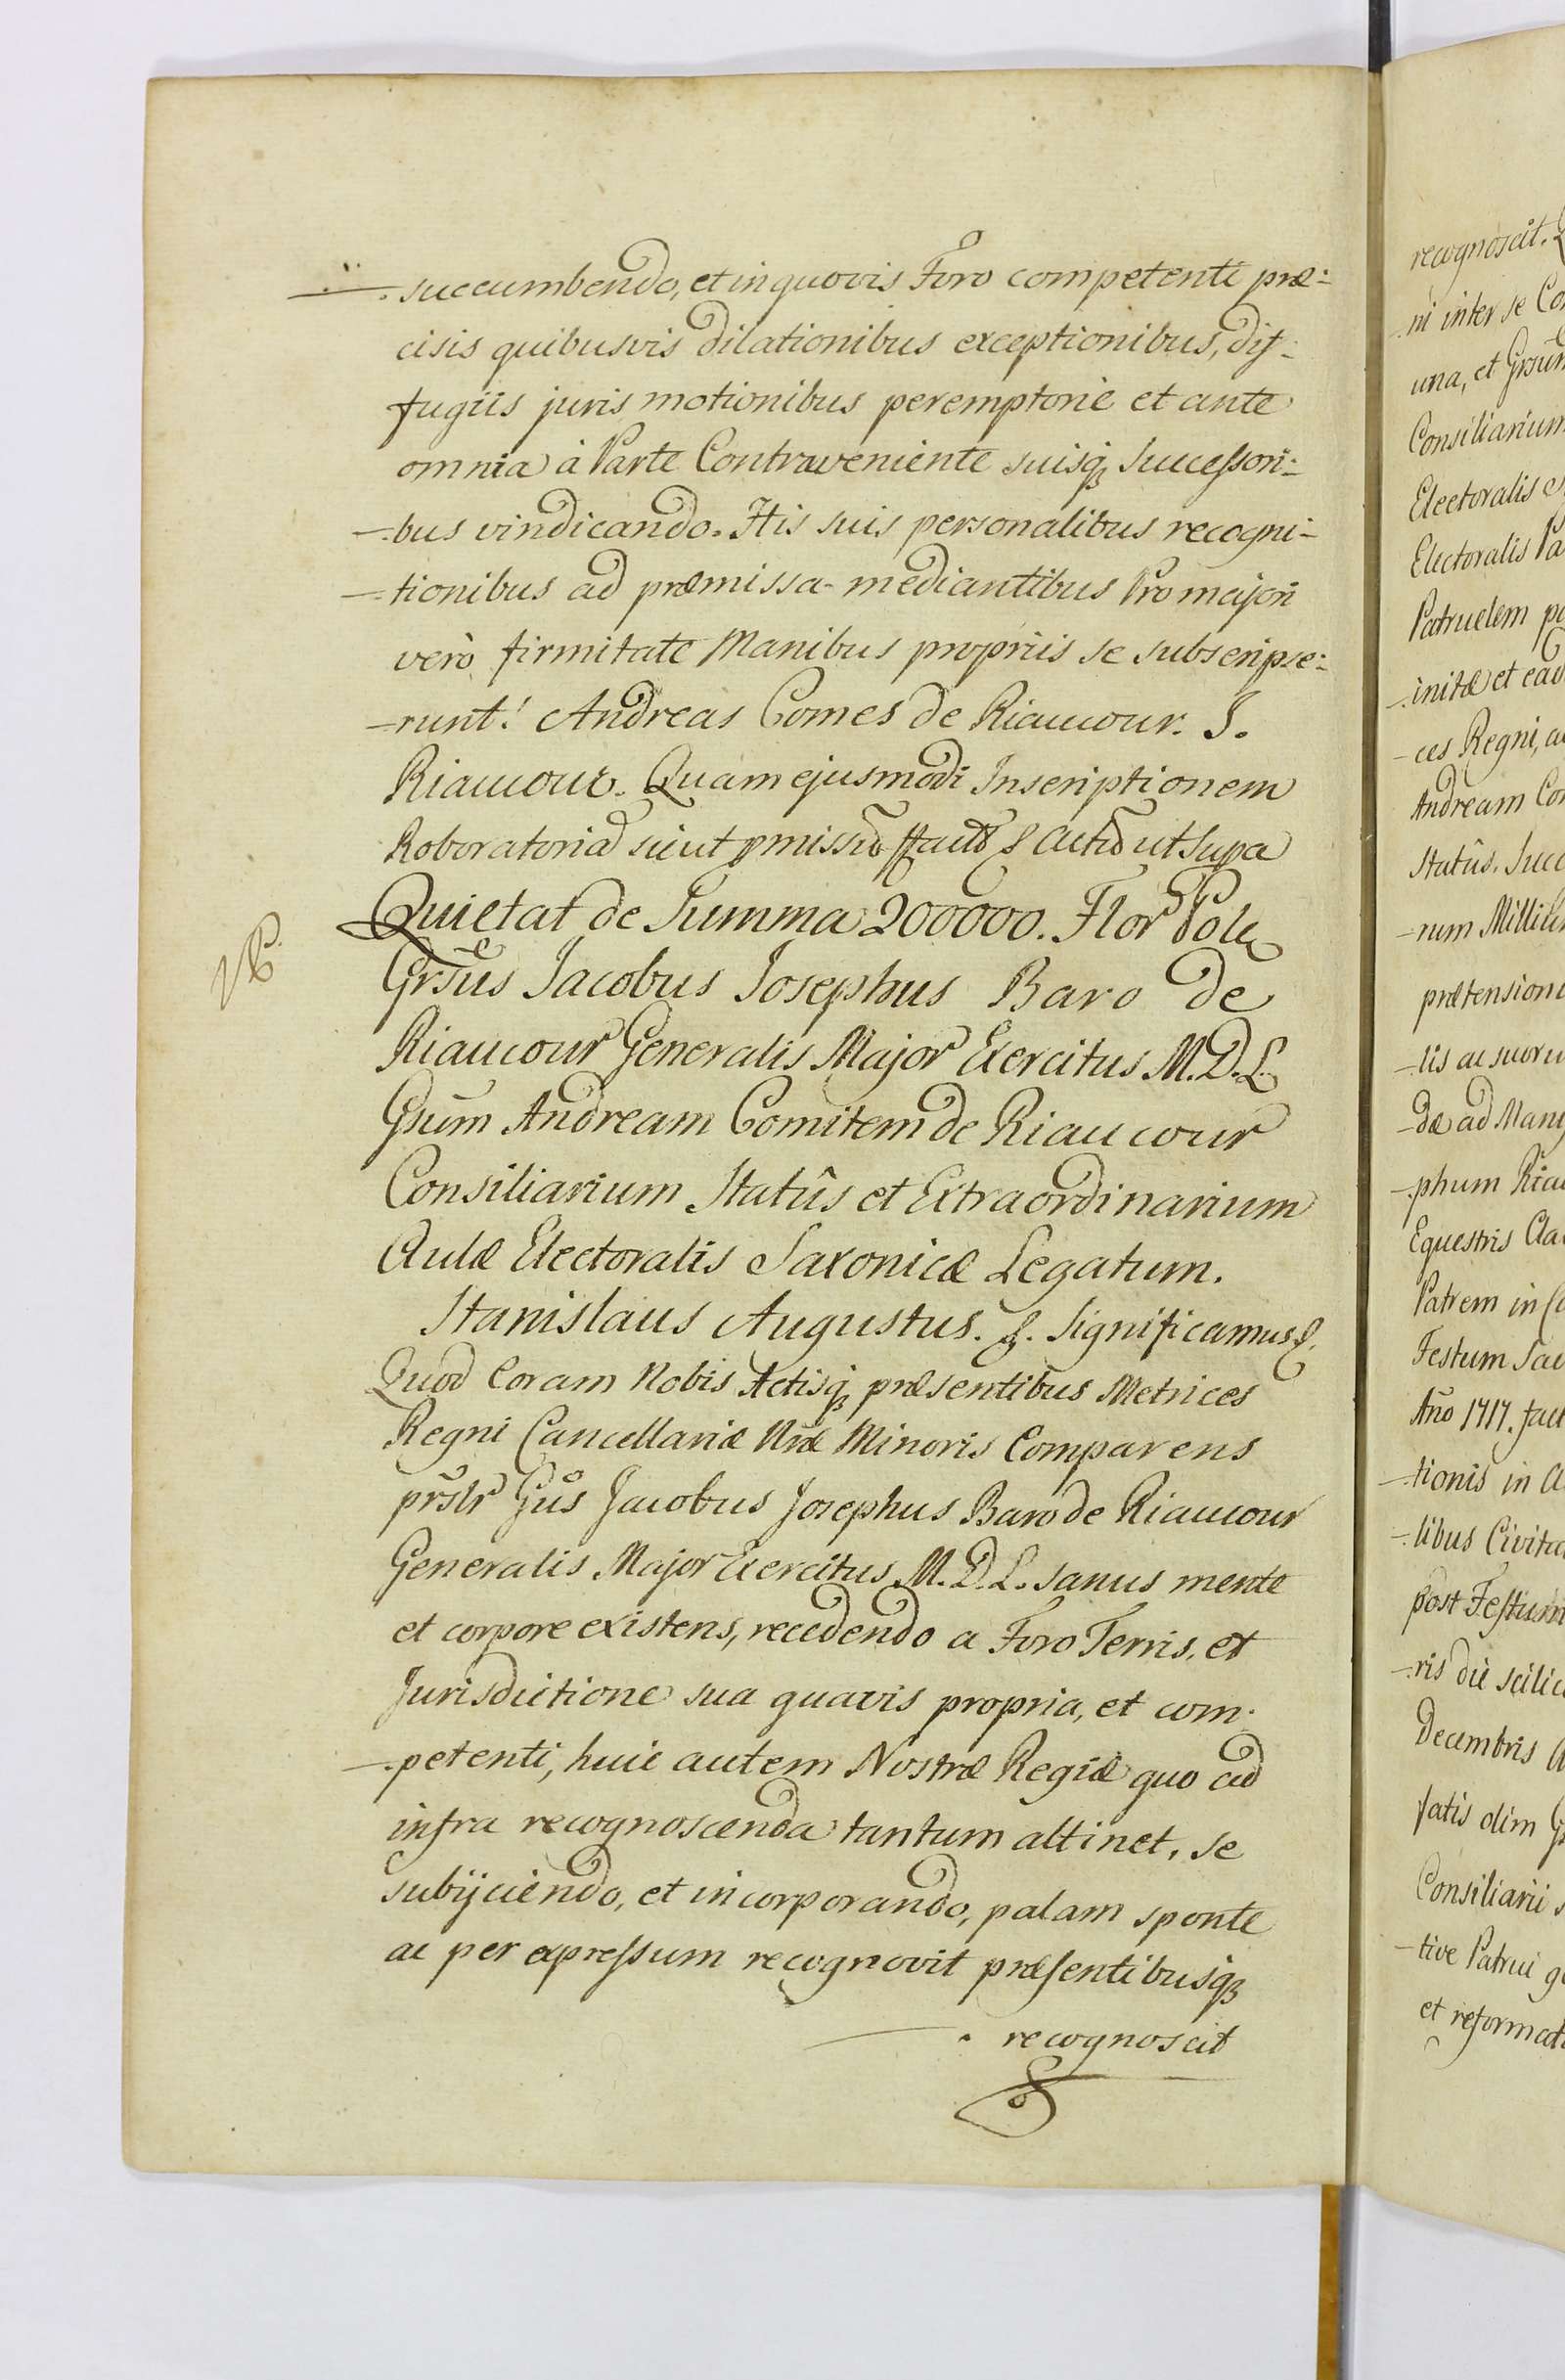 succumbendo, et in quovis Foro competenti præ-
cisis quibusvis dilationibus exceptionibus, dif-
fugiis juris motionibus peremptoriè et ante
omnia à Parte Contraveniente suisq, Successori-
-bus vindicando. His suis personalibus recogni-
-tionibus ad præmissa mediantibus Pro majori
verò firmitate Manibus propriis se subscripse-
-runt. Andreas Comes de Riaucour. J.
Riaucour. Quam ejusmodi Inscriptionem
Roboratoriã sicut ut Supa
Quietat de Summa 200000. Flor Pol
Grsũs Jacobus Josephus Baro de
Riaucour Generalis Major Exercitus M. D. L.
Gsũm Andream Comitem de Riaucour
Consiliarium Statûs et Extraordinarium
Aulæ Electoralis Saxonicæ Legatum.
Stanislaus Augustus. &. Significamus &.
Quod Coram Nobis Actisq, præsentibus Metrices
Regni Cancellariæ Nræ Minoris Comparens
prslr Gũs Jacobus Josephus Baro de Riaucour
Generalis Major Exercitus M. D. L. sanus mente
et corpore existens, recedendo a Foro Terris, et
Jurisdictione sua quavis propria, et com-
-petenti, huic autem Nostræ Regiæ quo ad
infra recognoscenda tantum attinet, se
subijciendo, et incorporando, palam sponte
ac per expressum recognovit præsentibusq,
recognoscit
recognoscit.
ni inter se Co
una, et Grsũm
Consiliarium
Electoralis
Electoralis Pa
Patruelem po
-initæ et ead
-ces Regni, a
Andream Co
Statûs. Succ
-rum Millie
prætension
-lis ac suoru
-dæ ad Man
-phum Riau
Equestris Cla
Patrem in C
Festum Sa
Año 1717. fact
-tionis in A
-libus Civita
post Festum
-ris die scilic
Decembris A
Vatis olim G
Consiliarii s
-tive Patrui g
et reformat